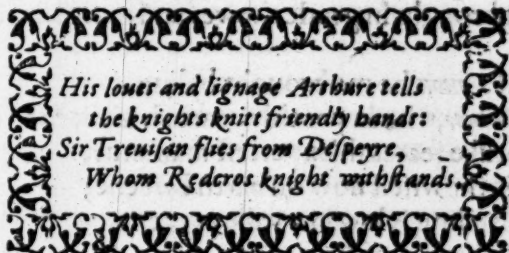 His loues and lignage Arthure tells
the knights knitt friendly bands:
Sir Treuiſan flies from Deſpeyre,
Whom Redcros knight withſtands.